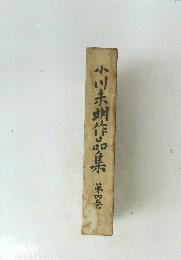 小川未明作品集
第四巻